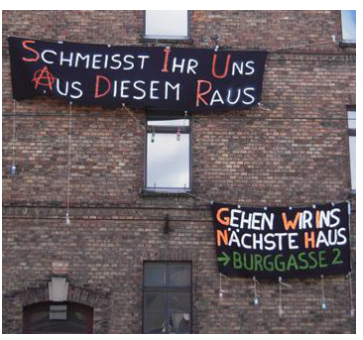 SCHMEISST IHR UNS
AUS DIESEM RAUS
GEHEN WIR INS
NÄCHSTE HAUS
→BURGGASSE 2